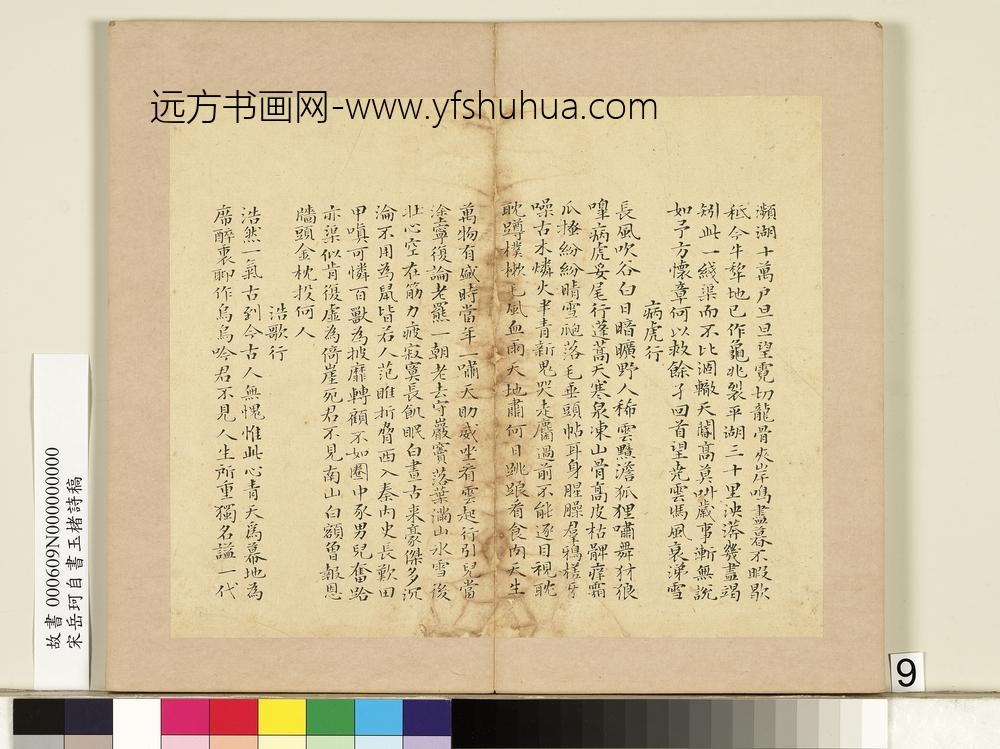 远方书画网-www.yfshuhua.com
瀕湖十萬戶旦旦望霓切龍骨夾岸鳴盡暮不暇歇
秪今牛犂地已作龜兆裂平湖三十里泱漭幾盡竭
矧此一綫渠而不比涸轍天閽高莫叫歲事漸無說
如予方懷章何以救餘孑回首望堯雲慿風裛涕雪
病虎行
長風吹谷白日暗曠野人稀雲黲澹狐狸嘯舞犲狼
嘷病虎妥尾行蓬蒿天寒泉凍山骨高皮枯髀瘁霜
爪搔紛紛晴雪袍落毛垂頭帖耳身腥臊羣鴉槎牙
噪古木燐火半青新鬼哭走麕過前不能逐目視耽
耽蹲樸樕毛風血雨天地肅何日跳踉看食肉天生
萬物有盛時當年一嘯天助威坐看雲起行引兒當
塗寧復論老羆一朝老去守巖竇落葉滿山氷雪後
壯心空在筋力疲寂寞長飢眠白晝古来豪傑多沉
淪不用為鼠皆若人范睢折脅西入秦内史長歎田
甲嗔可憐百獸為披靡轉顧不如圈中豕男兒奮跆
亦渠似肯復虛為倚崖死君不見南山白額曾報恩
牆頭金枕投何人
浩歌行
浩然一氣古到今古人無愧惟此心青天爲幕地為
席醉裛聊作烏烏吟君不見人生所重獨名謚一代
故書 000609N000000000
宋岳珂自書玉楮詩稿
9